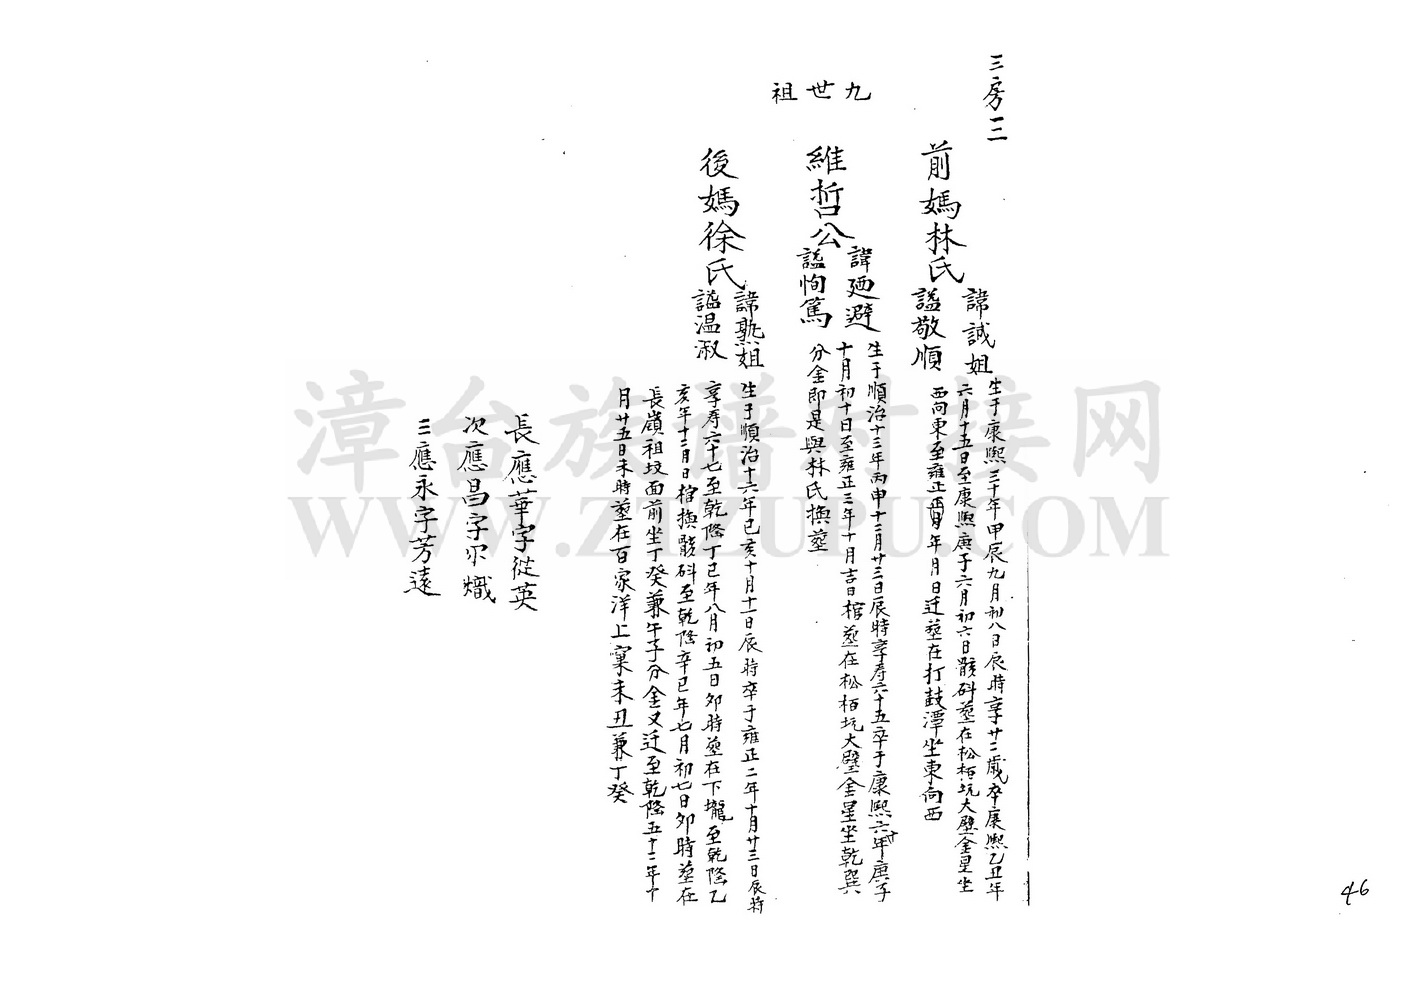 三房三
九世祖
前媽林氏
諱誠姐
諡敬順
生于康熙三十年甲辰九月初八日辰時享廿二歲卒康熙乙丑年
六月十五日至康熙庚子六月初六日骸葬在松栢坑大壁金星坐
西向東至雍正年月日迁葬在打鼓潭坐東向西
維哲公
諱廼避
諡恂篤
生于順治十三年丙申十二月廿三日辰時享寿六十五卒于康熙六十年庚子
十月初十日至雍正三年十月吉日棺葬在松栢坑大壁金星坐乾巽
分金即是與林氏換葬
後媽徐氏
諱熟姐
諡温淑
生于順治十六年己亥十月十一日辰時卒于雍正二年十月廿三日辰時
享寿六十七至乾隆丁巳年八月初五日卯時葬在下壠至乾隆乙
亥年十二月日棺換骸至乾隆辛巳年七月初七日卯時葬在
長嶺祖坟面前坐丁癸兼午子分金又迁至乾隆五十二年十
月廿五日未時葬在百家洋上窠未丑兼丁癸
長應華字從英
次應昌字尔熾
三應永字芳遠
漳台族谱对接网
WWW.ZTZUPU.COM
46